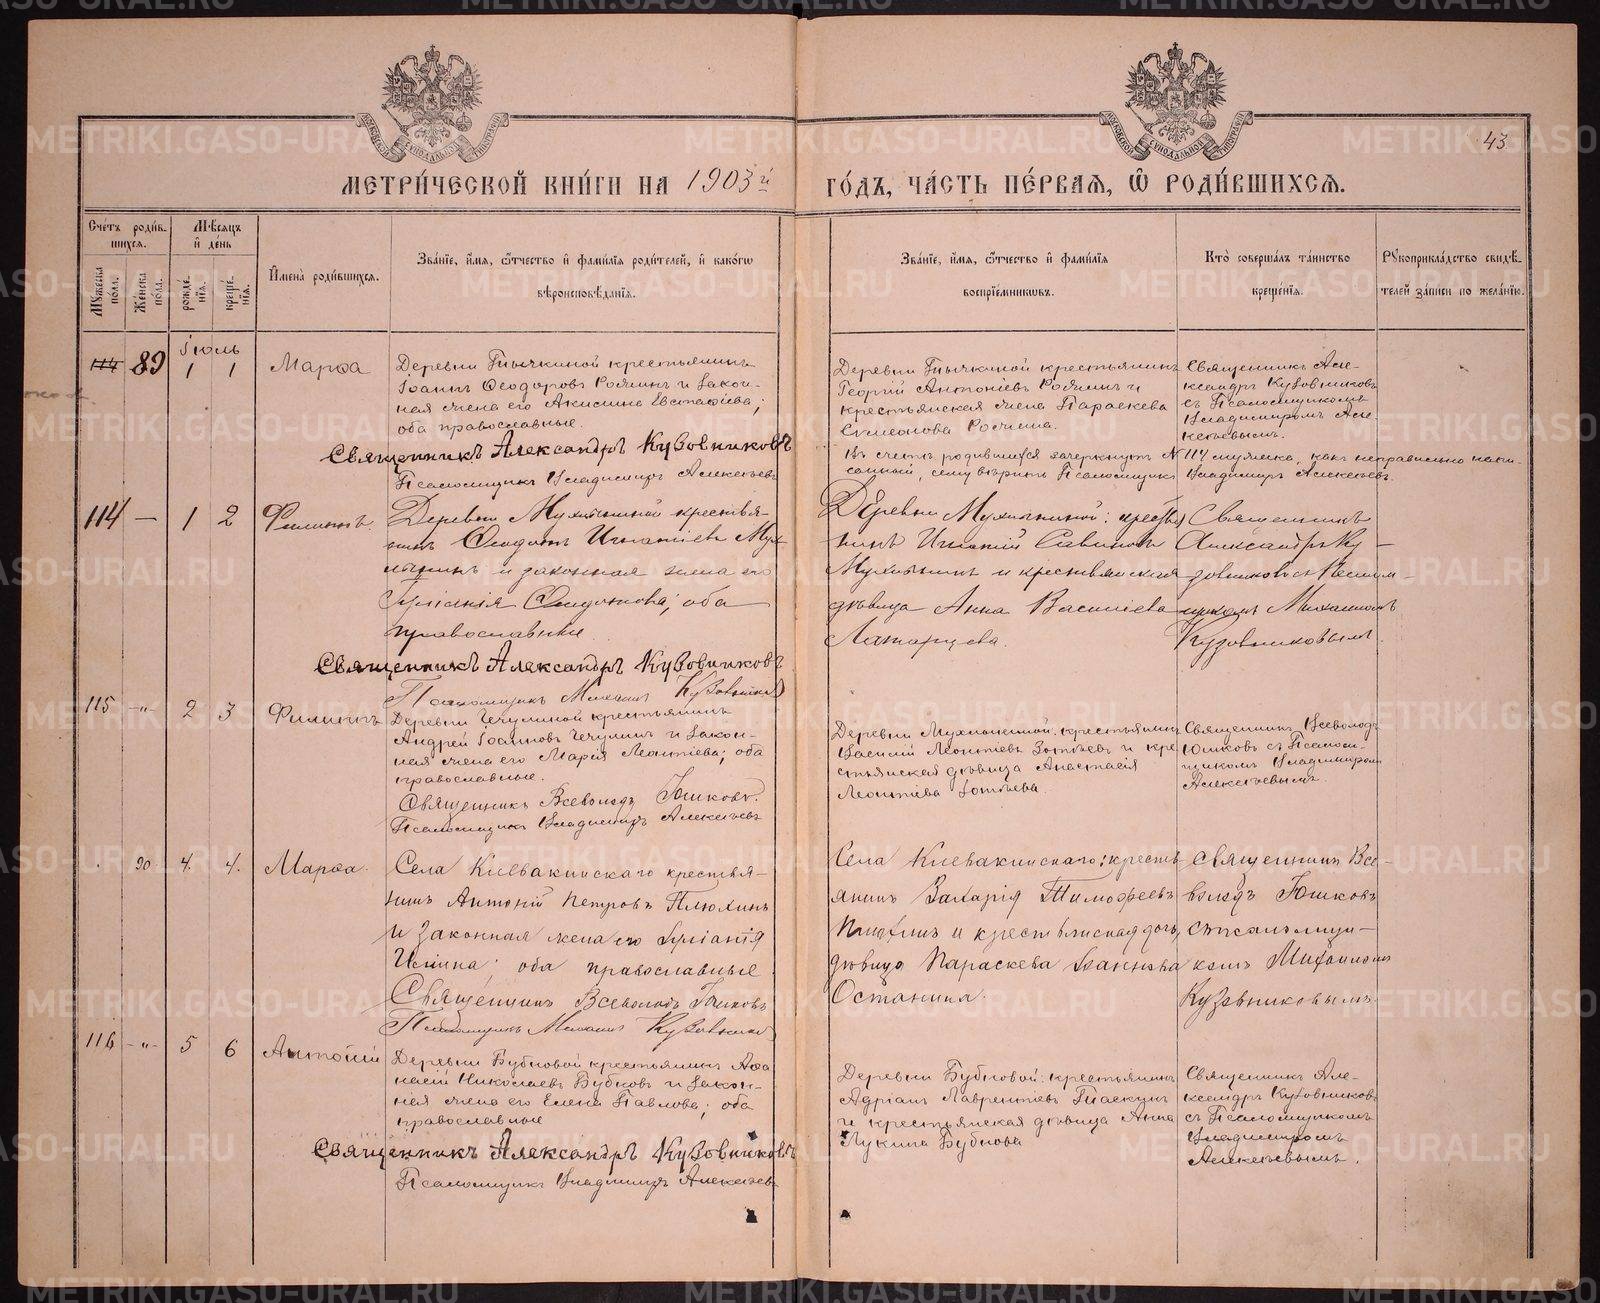 43
МЕТРИЧЕСКОЙ КНИГИ НА 1903й ГОДЪ, ЧАСТЬ ПЕРВАЯ, Ѡ РОДИВШИХСЯ.
Счетъ родившихся.
Мужеска пола.
Женска пола.
Мѣсяцъ и день
рожденія.
крещенія.
Имена родившихся.
Званіе, имя, отчество и фамилія родителей, и какогѡ
вѣроисповѣданія.
Званіе, имя, отчество и фамилія
воспріемниковъ.
Кто совершалъ таинство
крещенія.
Рукоприкладство свидѣ-
телей записи по желанію.
Іюль
114 89 1 1 Марѳа
Деревни крестьянинъ
Іоаннъ Ѳеодоровъ и закон-
ная жена его Акилина Евстафіева;
оба православные.
Священникъ Александръ Кузовниковъ
Псаломщикъ Владимиръ Алексѣевъ
Деревни крестьянинъ
Георгій Антоніевъ и
крестьянская жена Параскева
Симеонова
Священникъ Але-
ксандръ Кузовниковъ
съ Псаломщикомъ
Владимиромъ Але-
ксѣевымъ.
Въ счетѣ родившихся зачеркнутъ № 114 мужска, какъ неправильно напи-
санный, сему вѣритъ Псаломщикъ Владимиръ Алексѣевъ.
114 — 1 2 Филиппъ
Деревни Мухлыниной крестья-
нинъ Ѳеодотъ Игнатіевъ Мух-
лынинъ и законная жена его
Іуліанія оба
православные.
Священникъ Александръ Кузовниковъ
Псаломщикъ Михаилъ Кузовников
Деревни Мухлыниной: крестья
нинъ Игнатій Савинъ
Мухлынинъ и крестьянская
дѣвица Анна Василіева
Латарцева.
Священникъ
Александръ Ку-
зовниковъ съ Псалом-
щикомъ Михаиломъ
Кузовниковымъ.
115 -"- 2 3 Филиппъ
Деревни Чечулиной крестьянинъ
Андрей Іоанновъ Чечулинъ и закон-
ная жена его Марія Леонтіева; оба
православные.
Священникъ Всеволодъ Юшковъ.
Псаломщикъ Владимиръ Алексѣевъ
Деревни крестьянинъ
Василій Леонтіевъ Зотѣевъ и кре
стьянская дѣвица Анастасія
Леонтіева Зотѣева.
Священникъ Всеволодъ
Юшковъ съ Псалом-
щикомъ Владимиромъ
Алексѣевымъ.
90. 4. 4. Марѳа.
Села Клевакинскаго крестья-
нинъ Антоній Петровъ Плюхинъ
и законная жена его Іуліанія
оба православные.
Священникъ Всеволодъ Юшковъ
Псаломщикъ Михаилъ Кузовников
Села Клевакинскаго: кресть-
янинъ Захарія Тимофеевъ
и крестьянская дочь,
дѣвица Параскева Іоаннова
Останина.
Священникъ Все-
володъ Юшковъ
съ псаломщи-
комъ Михаиломъ
Кузовниковымъ.
116 -"- 5 6 Антоній
Деревни Бубновой крестьянинъ Аѳа
насій Николаевъ Бубновъ и закон-
ная жена его Елена Павлова; оба
православные
Священникъ Александръ Кузовниковъ
Псаломщикъ Владимиръ Алексѣевъ
Деревни Бубновой: крестьянинъ
Адріанъ Лаврентіевъ
и крестьянская дѣвица Анна
Лукина Бубнова
Священникъ Але-
ксандръ Кузовниковъ
съ Псаломщикомъ
Владимиромъ
Алексѣевымъ.
METRIKI.GASO-URAL.RU